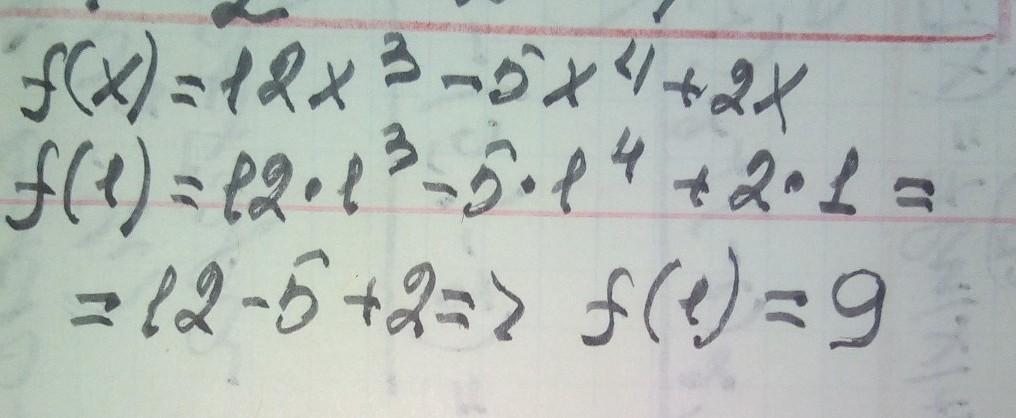 f(x) = 12x³ - 5x⁴ + 2x
f(1) = 12·1³ - 5·1⁴ + 2·1 =
= 12 - 5 + 2 => f(1) = 9